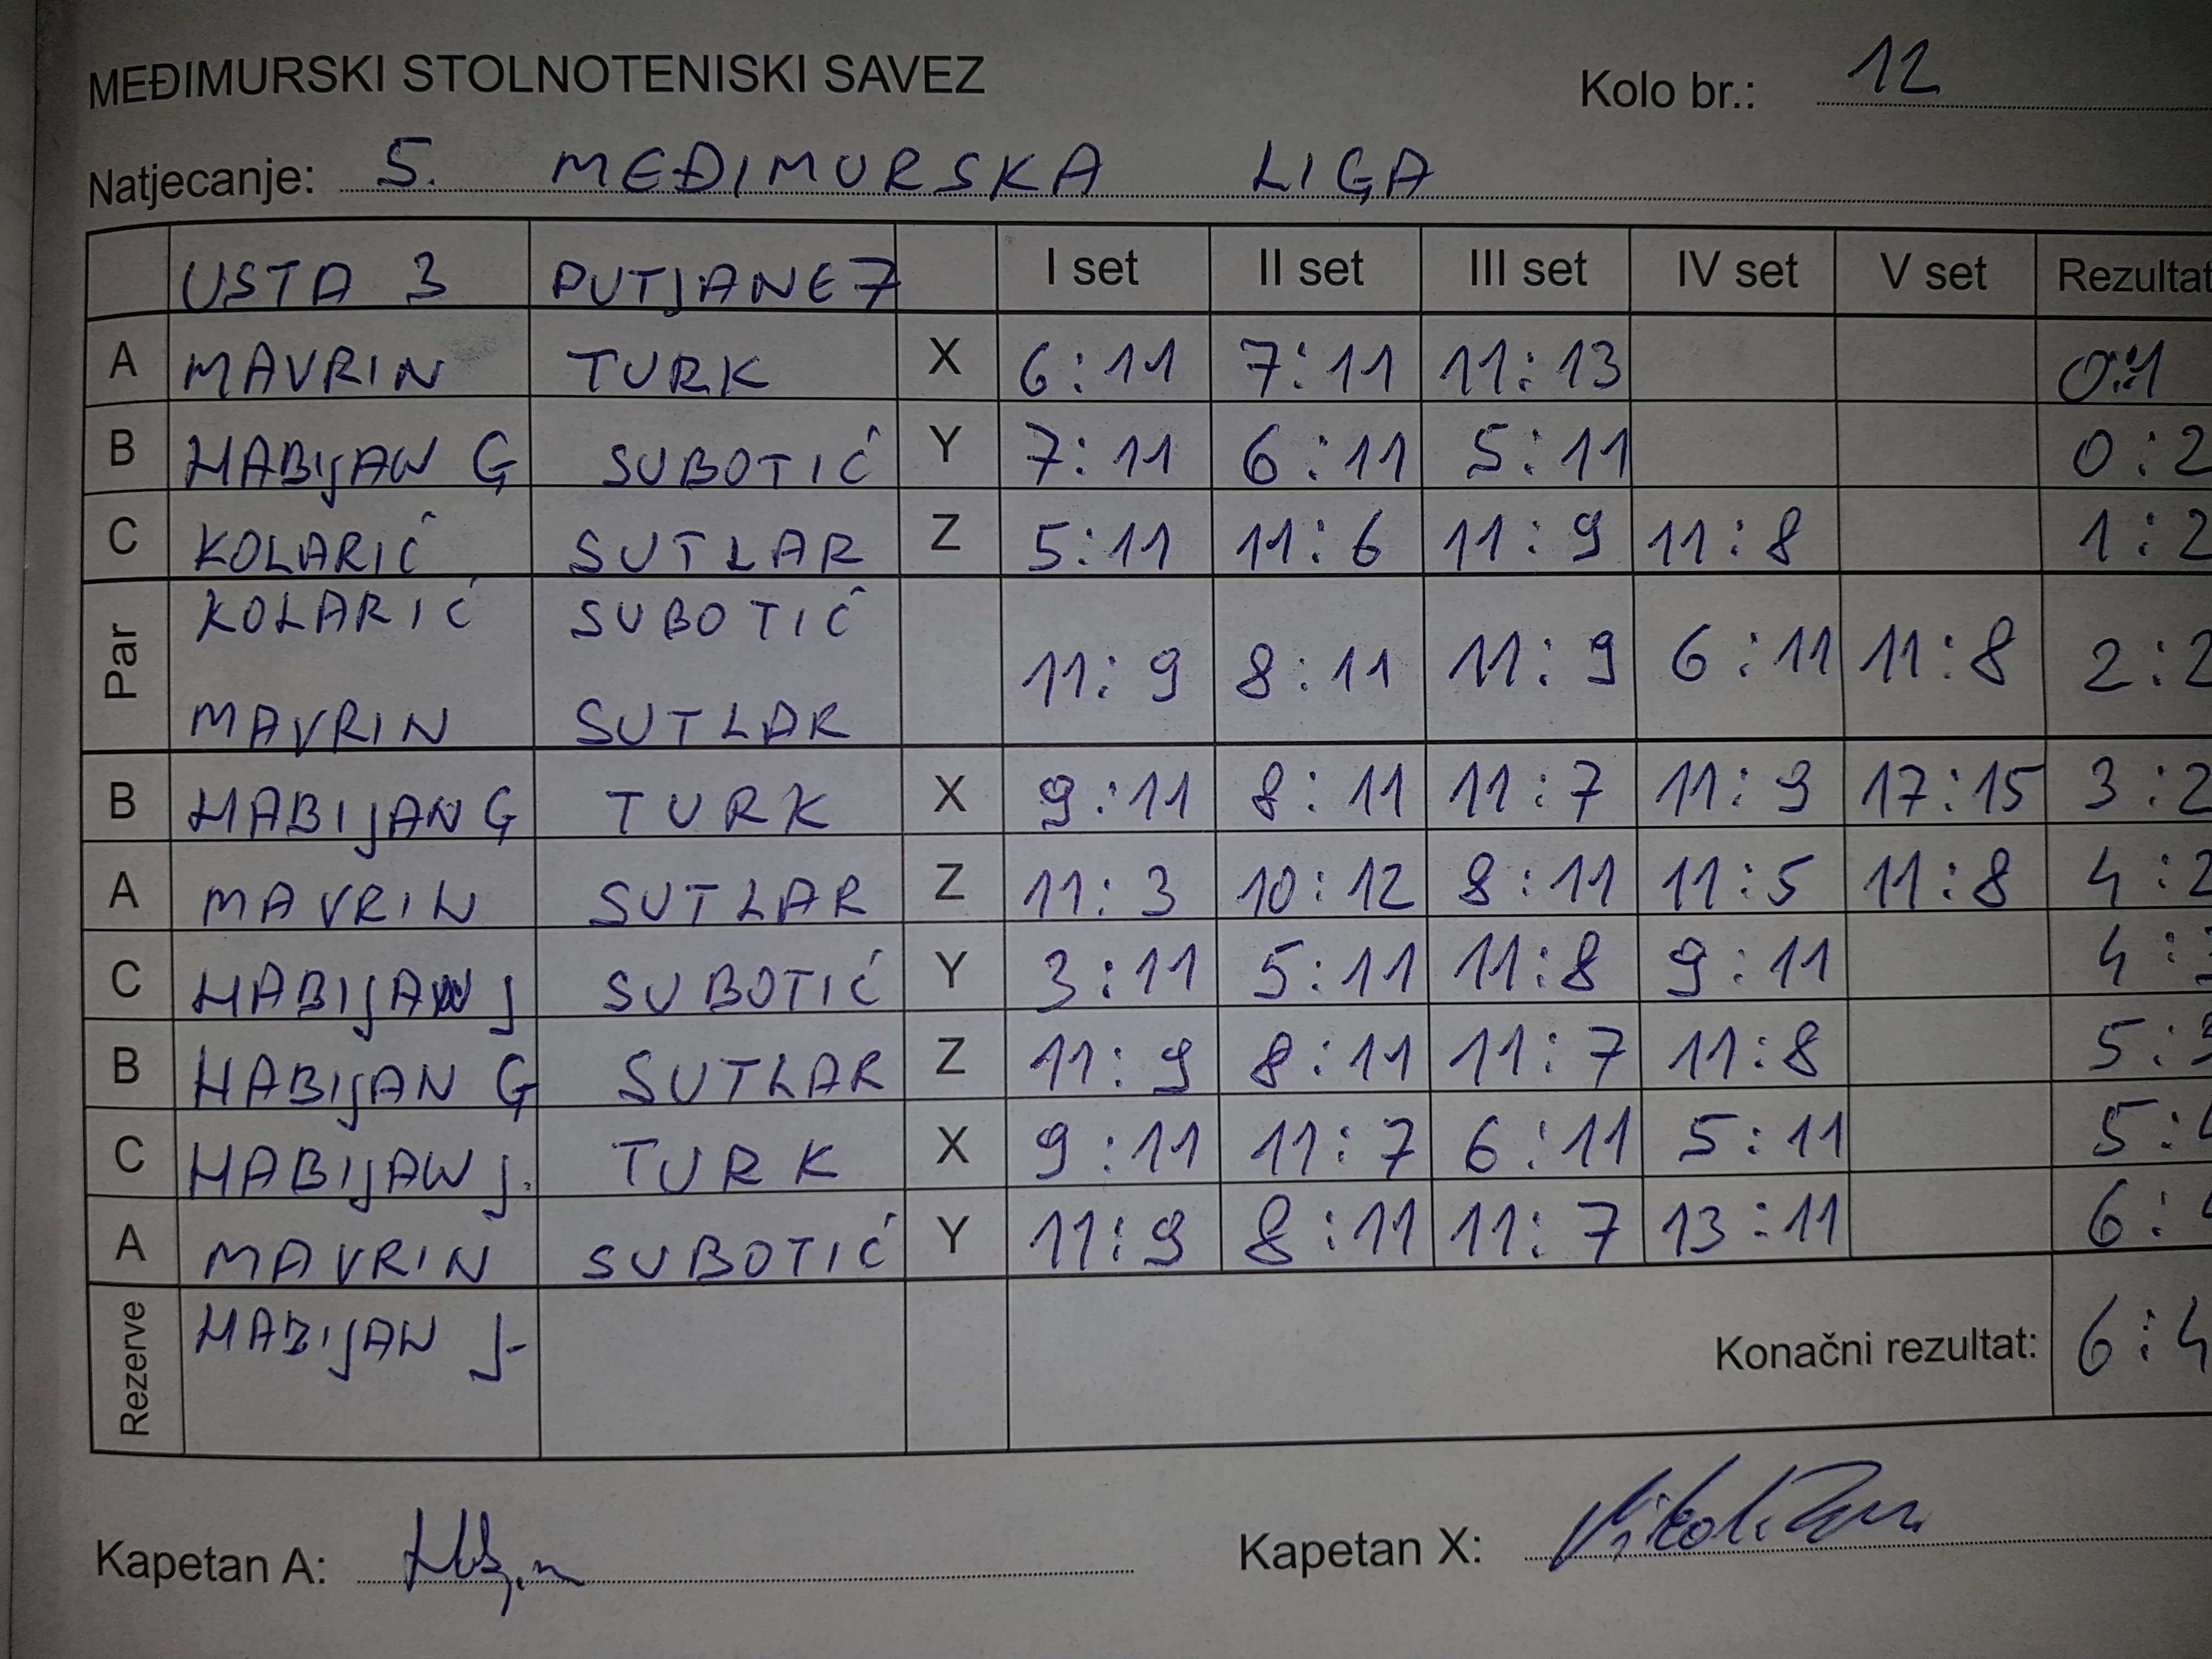 MEĐIMURSKI STOLNOTENISKI SAVEZ Kolo br.: 12
Natjecanje: 5. MEĐIMURSKA LIGA
USTA 3 PUTJANE 7 I set II set III set IV set V set Rezultat
A MAVRIN TURK X 6:11 7:11 11:13 0:1
B HABIJAN G SUBOTIĆ Y 7:11 6:11 5:11 0:2
C KOLARIĆ SUTLAR Z 5:11 11:6 11:9 11:8 1:2
Par KOLARIĆ SUBOTIĆ 11:9 8:11 11:9 6:11 11:8 2:2
MAVRIN SUTLAR
B HABIJAN G TURK X 9:11 8:11 11:7 11:9 17:15 3:2
A MAVRIN SUTLAR Z 11:3 10:12 8:11 11:5 11:8 4:2
C HABIJAN J SUBOTIĆ Y 3:11 5:11 11:8 9:11 4:3
B HABIJAN G SUTLAR Z 11:9 8:11 11:7 11:8 5:3
C HABIJAN J. TURK X 9:11 11:7 6:11 5:11 5:4
A MAVRIN SUBOTIĆ Y 11:9 8:11 11:7 13:11 6:4
Rezerve HABIJAN J- Konačni rezultat: 6:4
Kapetan A: Kapetan X: